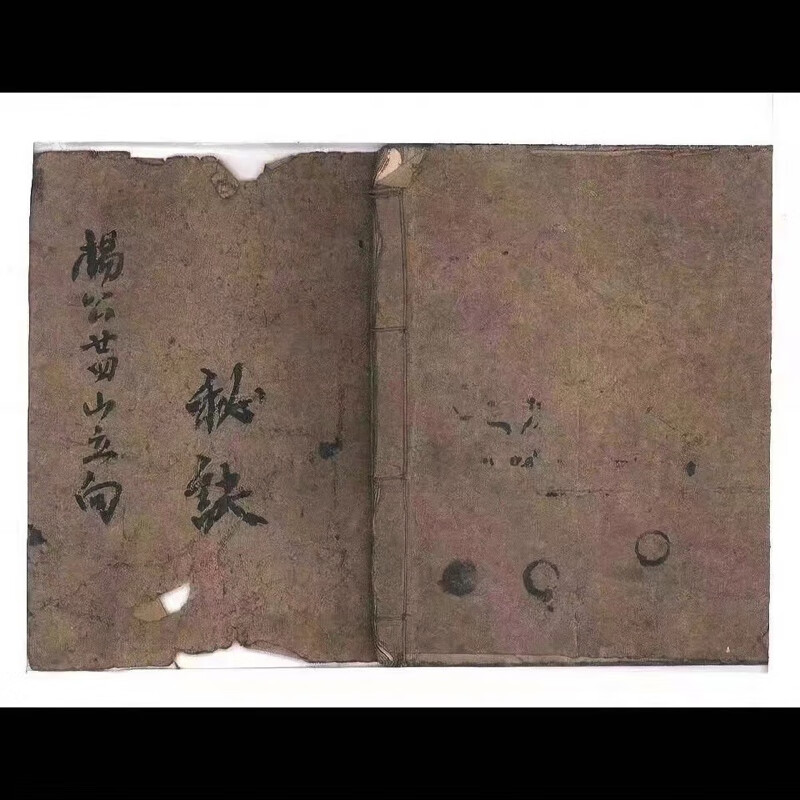 楊公廿四山立向
秘訣